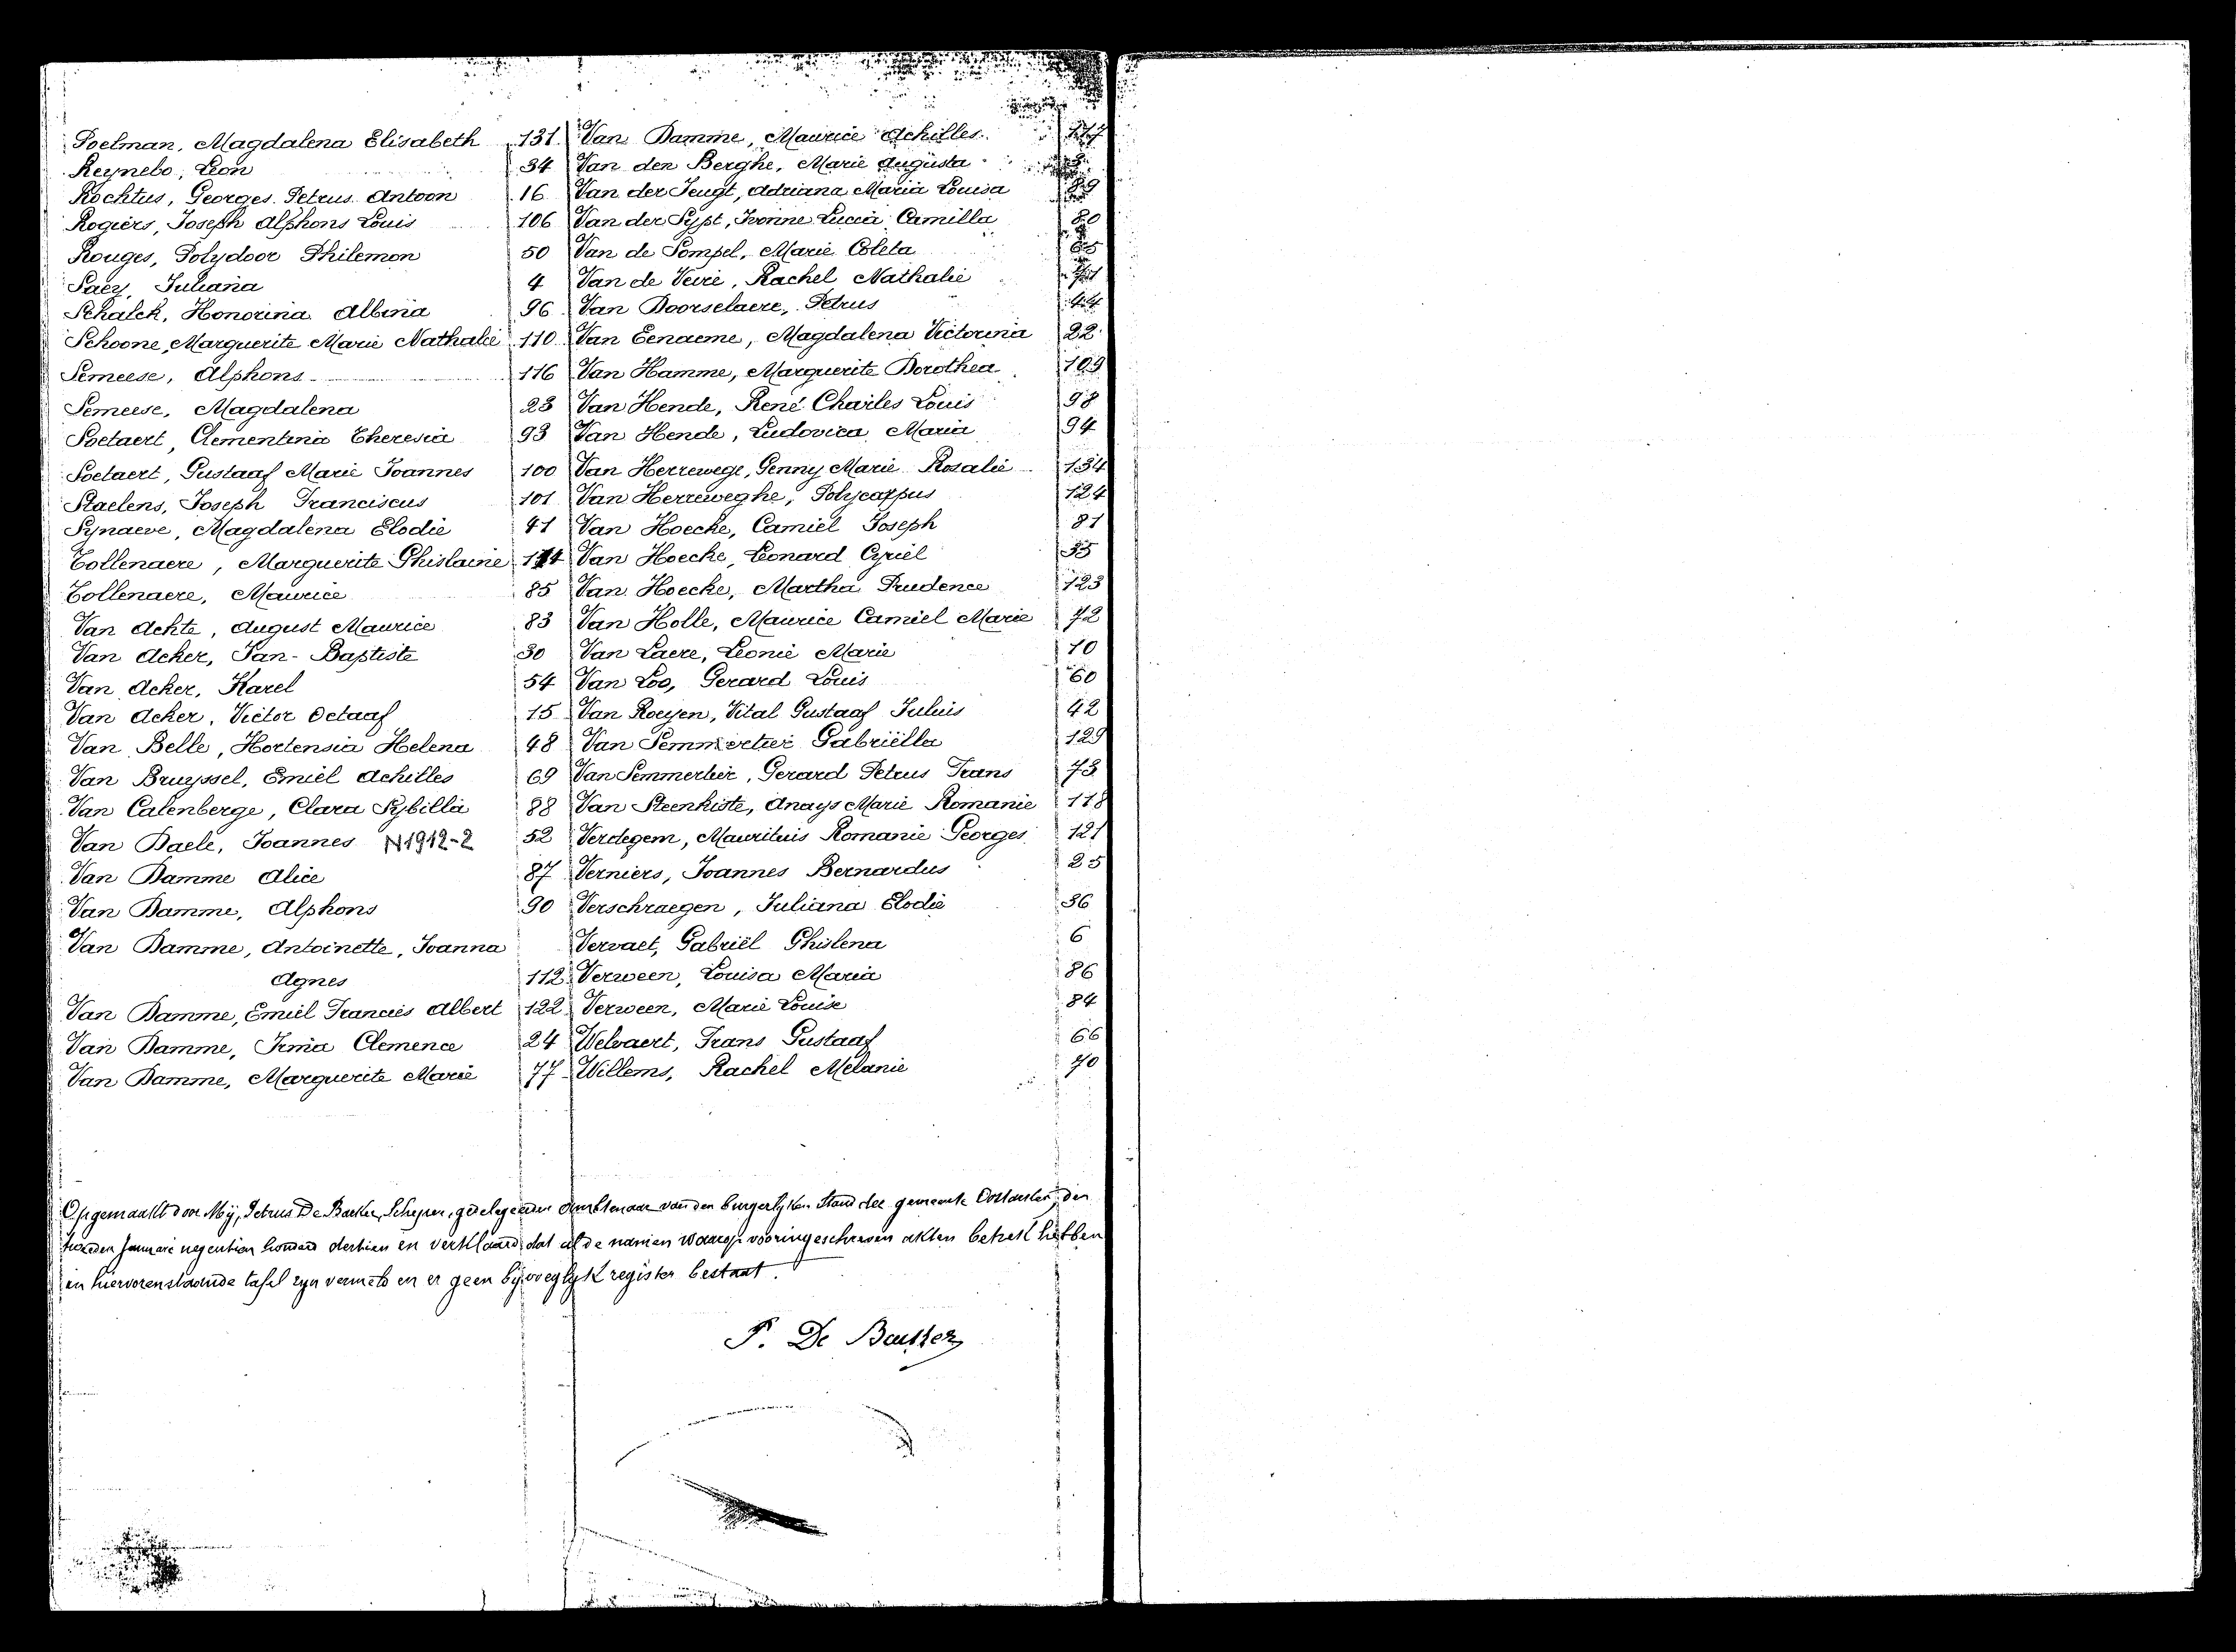 Poelman, Magdalena Elisabeth 131
Reynebo, Leon 34
Rochtus, Georges Petrus Antoon 16
Rogiers, Joseph Alphons Louis 106
Rouges, Polydoor Philemon 50
Saey, Juliana 4
Schalck, Honorina Albina 96
Schoone, Marguerite Marie Nathalie 110
Semeese, Alphons 116
Semeese, Magdalena 23
Soetaert, Clementina Theresia 93
Soetaert, Gustaaf Marie Joannes 100
Staelens, Joseph Franciscus 101
Synaeve, Magdalena Elodie 41
Tollenaere, Marguerite Ghislaine
Tollenaere, Maurice 85
Van Achte, August Maurice 83
Van Acker, Jan-Baptiste 30
Van Acker, Karel 54
Van Acker, Victor Octaaf 15
Van Belle, Hortensia Helena 48
Van Bruyssel, Emiel Achilles 69
Van Calenberge, Clara Sybilla 88
Van Daele, Joannes N1912-2 52
Van Damme Alice 87
Van Damme, Alphons 90
Van Damme, Antoinette, Joanna
Agnes 112
Van Damme, Emiel Francies Albert 122
Van Damme, Irma Clemence 24
Van Damme, Marguerite Marie 77
Van Damme, Maurice Achilles 117
Van den Berghe, Marie Augusta
Van der Jeugt, Adriana Maria Louisa 89
Van der Sypt, Ivonne Lucia Camilla 80
Van de Pompel, Marie Coleta 65
Van de Veire, Rachel Nathalie
Van Doorselaere, Petrus 44
Van Eenaeme, Magdalena Victorina 22
Van Hamme, Marguerite Dorothea 109
Van Hende, René Charles Louis 98
Van Hende, Ludovica Maria 94
Van Herrewege, Jenny Marie Rosalie 134
Van Herreweghe, Polycarpus 124
Van Hoecke, Camiel Joseph 81
Van Hoecke, Leonard Cyriel 35
Van Hoecke, Martha Prudence 123
Van Holle, Maurice Camiel Marie 72
Van Laere, Leonie Marie 10
Van Loo, Gerard Louis 60
Van Roeyen, Vital Gustaaf Julius 42
Van Semmertier Gabriëlla 129
Van Semmertier, Gerard Petrus Frans 73
Van Steenkiste, Anays Marie Romanie 118
Verdegem, Mauritius Romanie Georges 121
Verniers, Joannes Bernardus 25
Verschraegen, Juliana Elodie 36
Vervaet, Gabriël Ghislena 6
Verween, Louisa Maria 86
Verween, Marie Louise 84
Welvaert, Frans Gustaaf 66
Willems, Rachel Melanie 70
Opgemaakt door Mij, Petrus De Backer, Schepen, gedelegeerden ambtenaar van den burgerlyken stand der gemeente Oostacker, den
tweeden Januari negentien honderd dertien en verklaard dat al de namen waarop vooringeschreven akten betrek hebben
in hiervorenstaande tafel zyn vermeld en er geen bijvoeglyk register bestaat.
P. De Backer